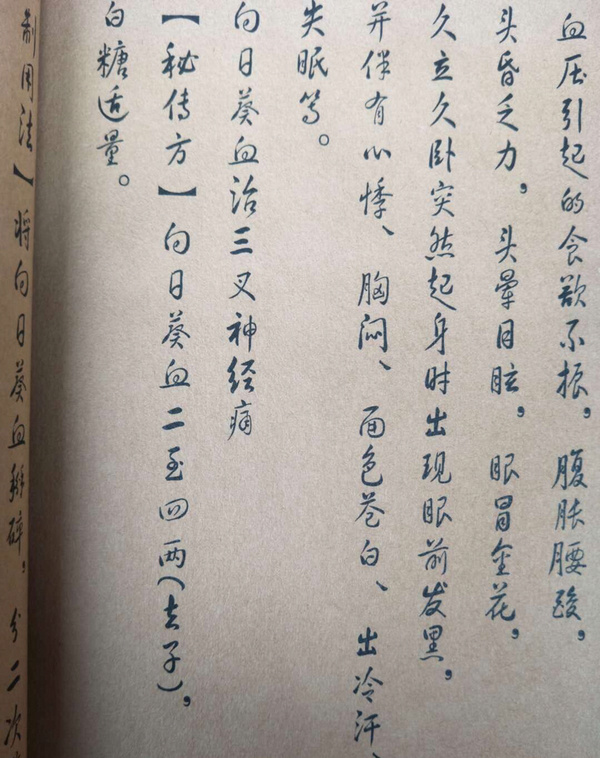 血压引起的食欲不振，腹胀腰酸，
头昏乏力，头晕目眩，眼冒金花，
久立久卧突然起身时出现眼前发黑，
并伴有心悸、胸闷、面色苍白、出冷汗、
失眠等。
向日葵血治三叉神经痛
【秘传方】向日葵血二至四两(去子)，
白糖适量。
制用法】将向日葵血掰碎，分二次